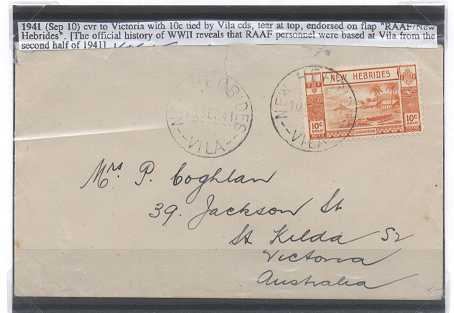 1941 (Sep 10) cvr to Victoria with 10c tied by Vila cds, tear at top, endorsed on flap "RAAF/New
Hebrides". [The official history of WWII reveals that RAAF personnel were based at Vila from the
second half of 1941]
NEW HEBRIDES
10c 10c
VILA
VILA
Mrs P. Coghlan
39, Jackson St
St Kilda S2
Victoria
Australia